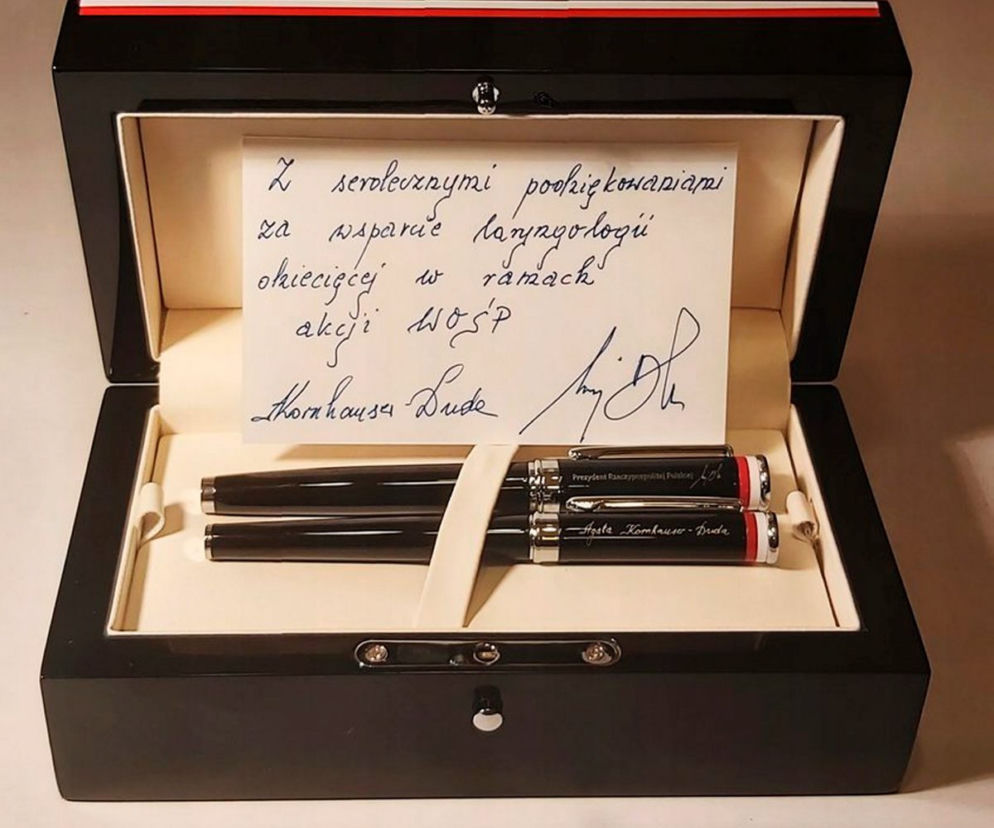 Z serdecznymi podziękowaniami
za wsparcie laryngologii
dziecięcej w ramach
akcji WOŚP
Kornhauser-Duda
Prezydent Rzeczypospolitej Polskiej
Agata Kornhauser-Duda